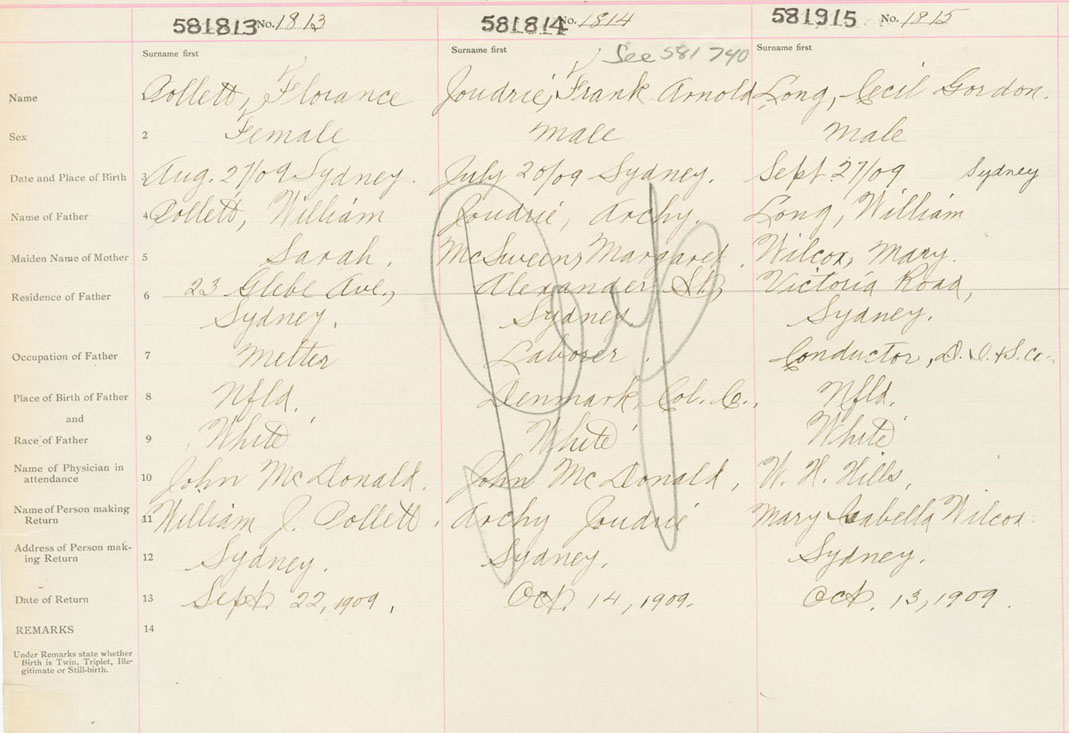 581813 No. 1813
581814 No. 1814
581915 No. 1815
Surname first
Surname first
See 581 740
Surname first
Name 1 Collett, Florance
Joudrie, Frank Arnold
Long, Cecil Gordon.
Sex 2 Female
Male
Male
Date and Place of Birth 3 Aug. 27/09 Sydney.
July 20/09 Sydney.
Sept 27/09 Sydney
Name of Father 4 Collett, William
Joudrie, Archy.
Long, William
Maiden Name of Mother 5 Sarah.
McSween, Margaret.
Wilcox, Mary.
Residence of Father 6 23 Glebe Ave.,
Sydney.
Alexander St.,
Sydney.
Victoria Road,
Sydney.
Occupation of Father 7 Melter
Laborer.
Conductor, D. I. & S. Co.
Place of Birth of Father 8 Nfld.
Denmark, Col. C.,
Nfld.
and
Race of Father 9 White
White
White
Name of Physician in
attendance 10 John McDonald.
John McDonald,
W. H. Hills,
Name of Person making
Return 11 William J. Collett.
Archy Joudrie
Mary Isabella Wilcox.
Address of Person mak-
ing Return 12 Sydney.
Sydney.
Sydney.
Date of Return 13 Sept. 22, 1909.
Oct. 14, 1909.
Oct. 13, 1909.
REMARKS 14
Under Remarks state whether
Birth is Twin, Triplet, Ille-
gitimate or Still-birth.